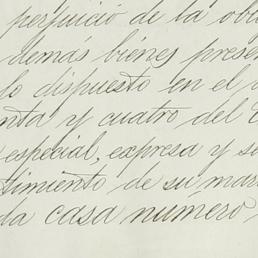 perjuicio de la obl
demás bienes presen
lo dispuesto en el a
nta y cuatro del C
especial, expresa y se
timiento de su mari
da casa numero